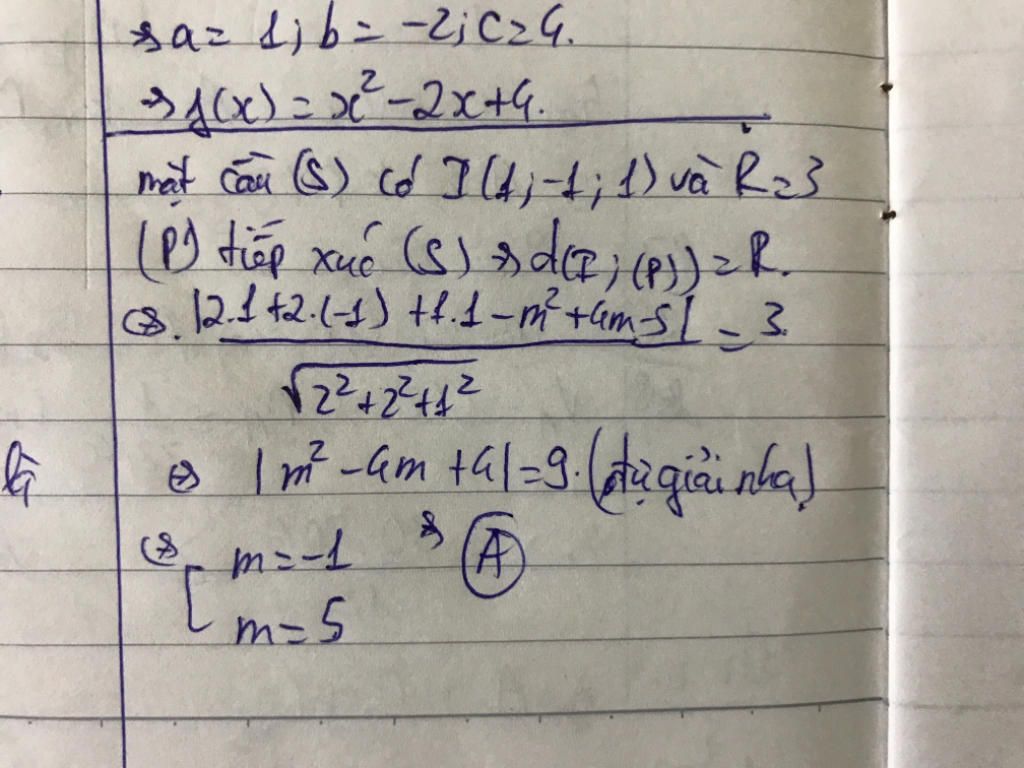 ⇒ a = 1; b = -2; c = 4.
⇒ f(x) = x² - 2x + 4.
mặt cầu (S) có I(1; -1; 1) và R = 3
(P) tiếp xúc (S) ⇒ d(I; (P)) = R.
⇔ |2.1 + 2.(-1) + 1.1 - m² + 4m - 5| / √(2² + 2² + 1²) = 3.
là
⇔ |m² - 4m + 4| = 9. (tự giải nha)
⇔ [ m = -1 ⇒ (A)
m = 5